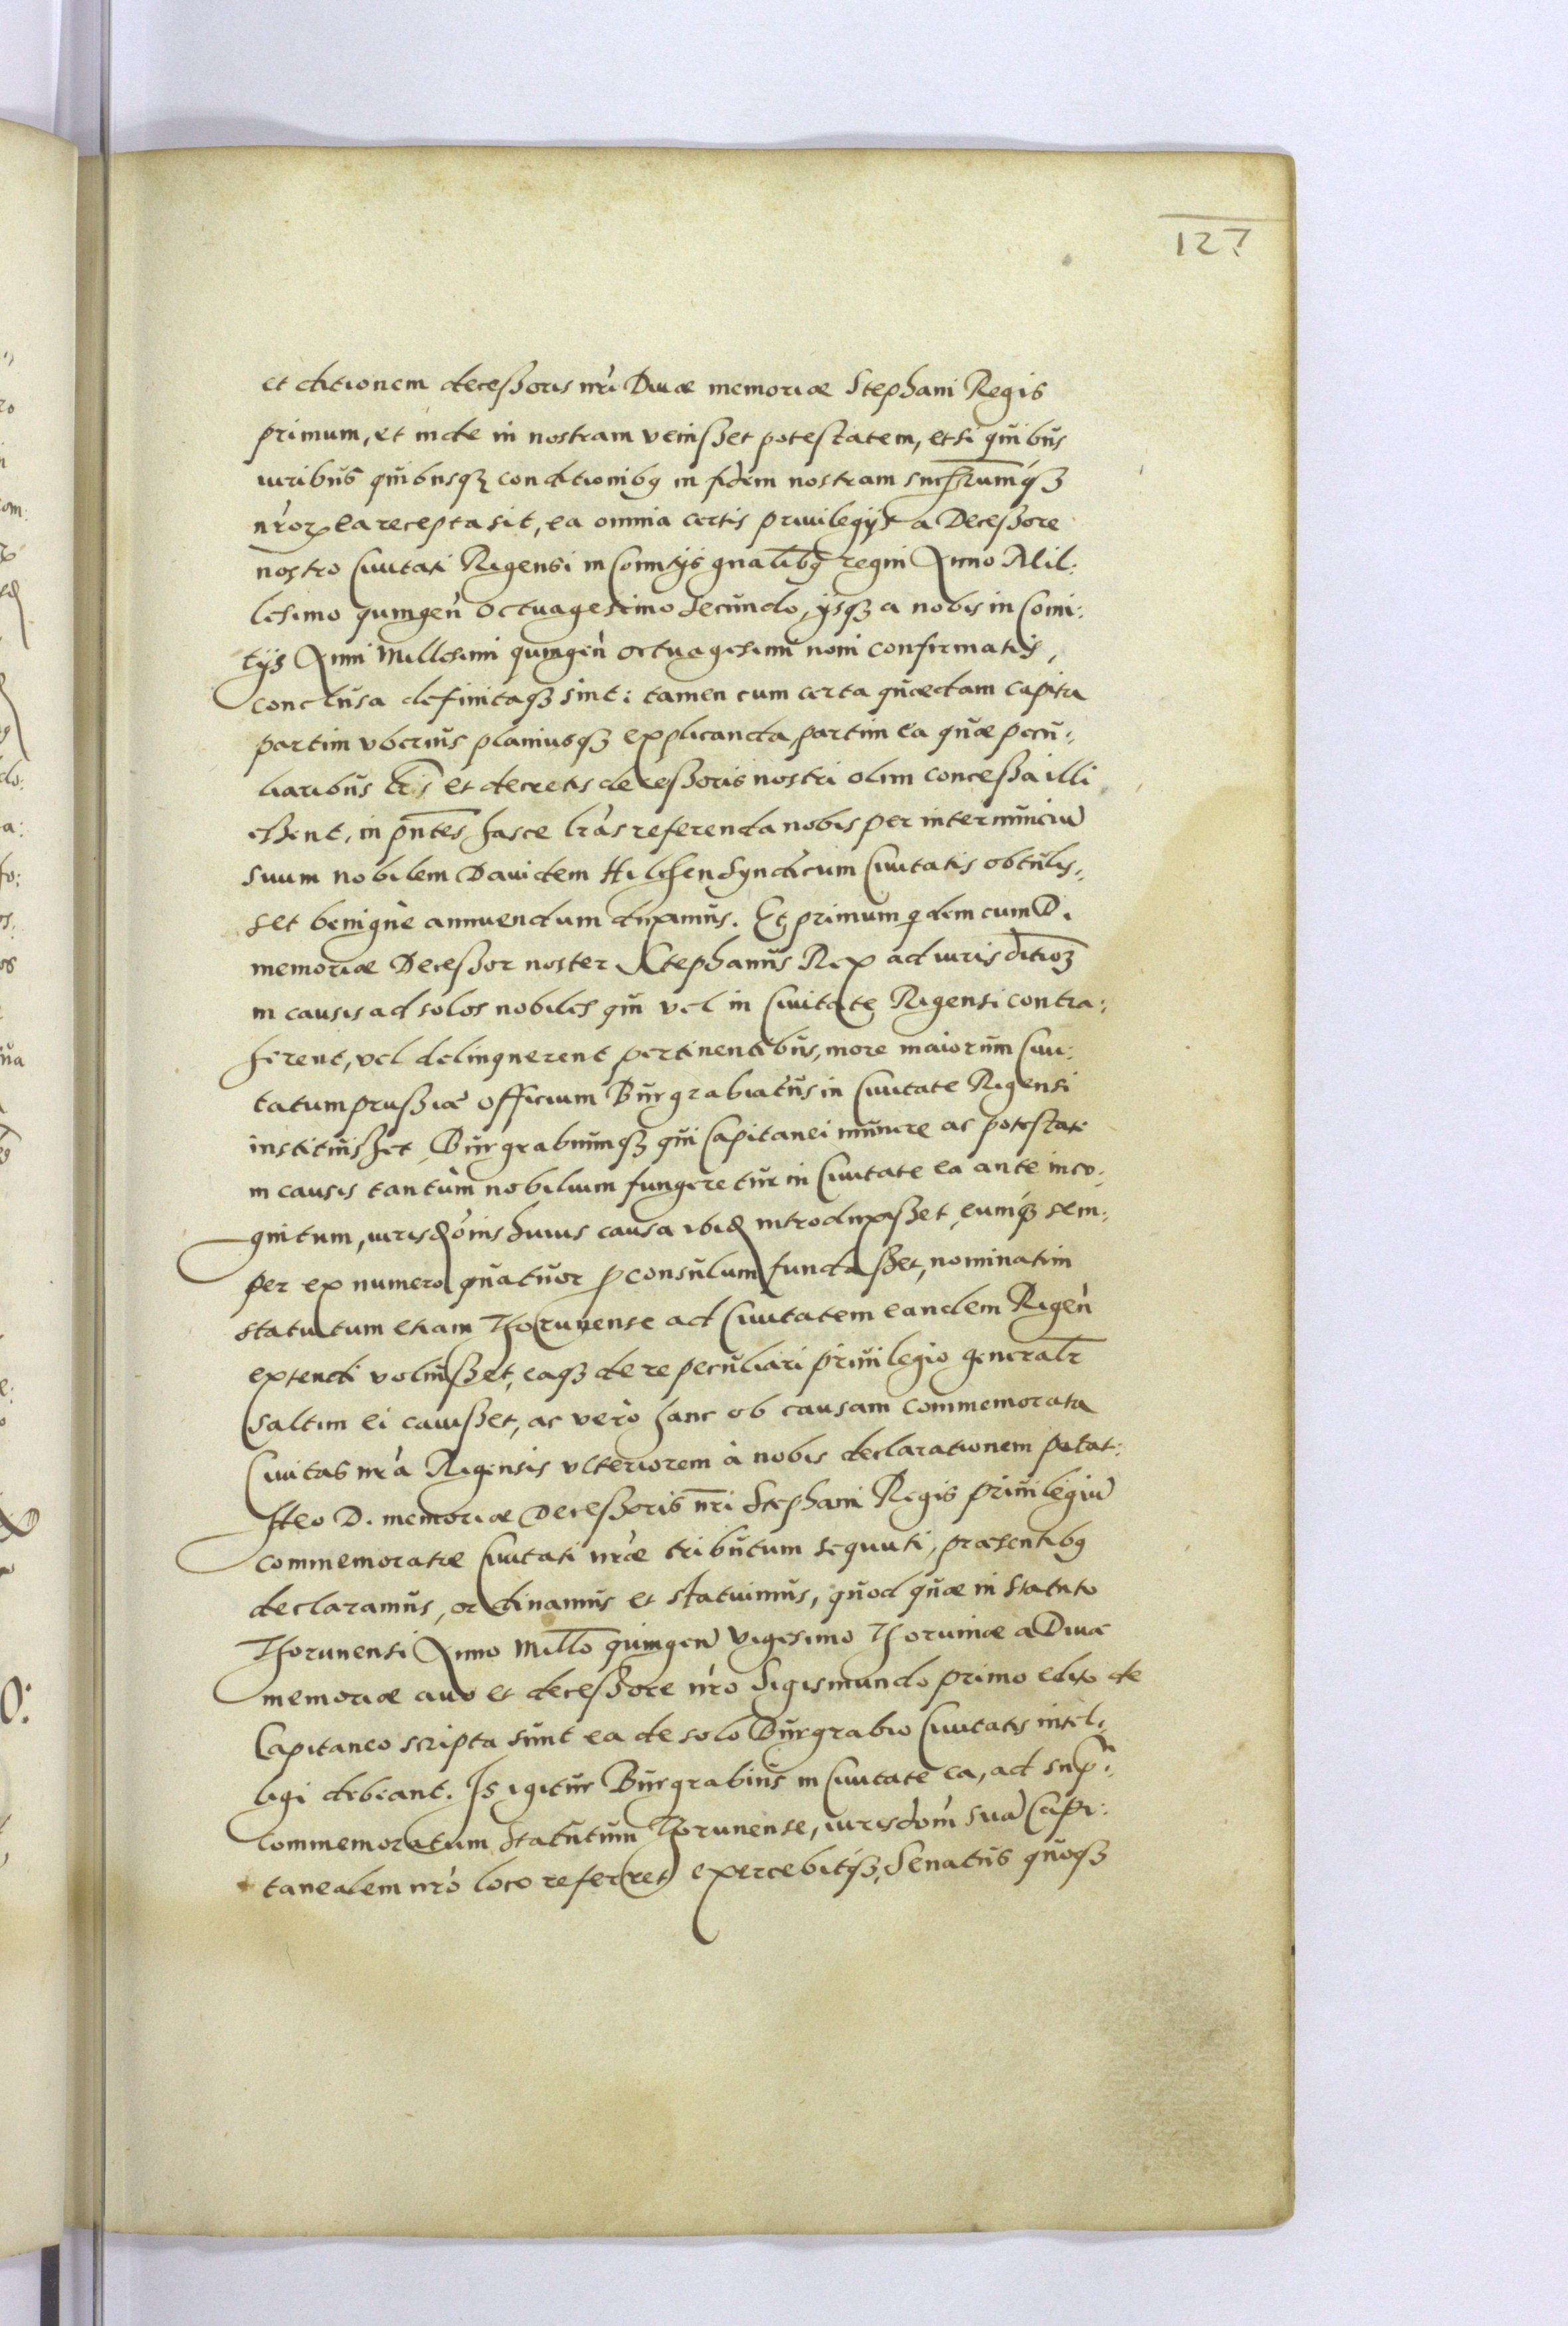 127
et ditionem decessoris nri Divæ memoriæ Stephani Regis
primum, et inde in nostram venisset potestatem, etsi quibus
iuribus quibusq; conditionibq in fidem nostram
nror ea recepta sit, ea omnia certis privilegijs a Decessore
nostro Civitati Rigensi in Comitijs gnalibq regni Anno Mil:
lesimo quingen octuagesimo secundo, ijsq; a nobis in Comi:
tijs Anni Millesimi quingen octuagesimi noni confirmatis,
conclusa definitaq; sint: tamen cum certa quædam capita
partim vberius planiusq; explicanda, partim ea quæ pecu:
liaribus lris et decretis decessoris nostri olim concessa illi
essent, in pntes hasce lras referenda nobis per internunciu
suum nobilem Davidem Hilchen Syndicum Civitatis obtulis:
set benignè annuendum duximus. Et primum qdem cum D.
memoriæ Decessor noster Stephanus Rex ad iurisditioē
in causis ad solos nobiles qui vel in Civitate Rigensi contra:
herent, vel delinquerent pertinentibus, more maiorum Civi:
tatum prussiæ officium Burgrabiatus in Civitate Rigensi
instituisset, Burgrabiumq; qui Capitanei munere ac potestate
in causis tantùm nobilium fungeretur in Civitate ea ante inco:
gnitum, iurisdōnis huius causa ibid introduxisset, eumq; sem:
per ex numero quatuor pconsulum fundasset, nominatim
statutum etiam Thorunense ad Civitatem eandem Rigen
extendi voluisset, eaq; de re peculiari privilegio generalr
saltim ei cavisset, ac verò hanc ob causam commemorata
Civitas nra Rigensis vlteriorem à nobis declarationem petat:
Ideo D. memoriæ Decessoris nri Stephani Regis privilegiu
commemoratæ Civitati nræ tributum sequuti, præsentibq
declaramus, ordinamus et statuimus, quod quæ in Statuto
Thorunensi Anno Millo quingen vigesimo Thoruniæ a Divæ
memoriæ avo et decessore nro Sigismundo primo edito de
Capitaneo scripta sunt ea de solo Burgrabio Civitatis intel:
ligi debeant. Is igitur Burgrabius in Civitate ea, ad sup:
commemoratum Statutum Thorunense, iurisdōm suā Capi:
tanealem nro loco referret exercebitq;, Senatus quoq;